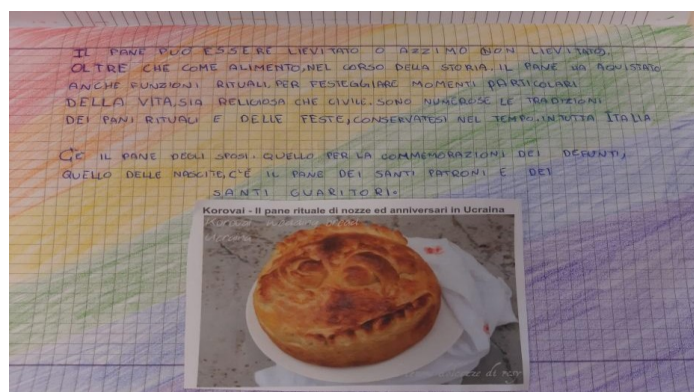 IL PANE PUÒ ESSERE LIEVITATO O AZZIMO (NON LIEVITATO).
OLTRE CHE COME ALIMENTO, NEL CORSO DELLA STORIA. IL PANE HA ACQUISTATO
ANCHE FUNZIONI RITUALI, PER FESTEGGIARE MOMENTI PARTICOLARI
DELLA VITA, SIA RELIGIOSA CHE CIVILE. SONO NUMEROSE LE TRADIZIONI
DEI PANI RITUALI E DELLE FESTE, CONSERVATESI NEL TEMPO. IN TUTTA ITALIA
C'È IL PANE DEGLI SPOSI. QUELLO PER LA COMMEMORAZIONI DEI DEFUNTI,
QUELLO DELLE NASCITE, C'È IL PANE DEI SANTI PATRONI E DEI
SANTI GUARITORI.
Korovai - Il pane rituale di nozze ed anniversari in Ucraina